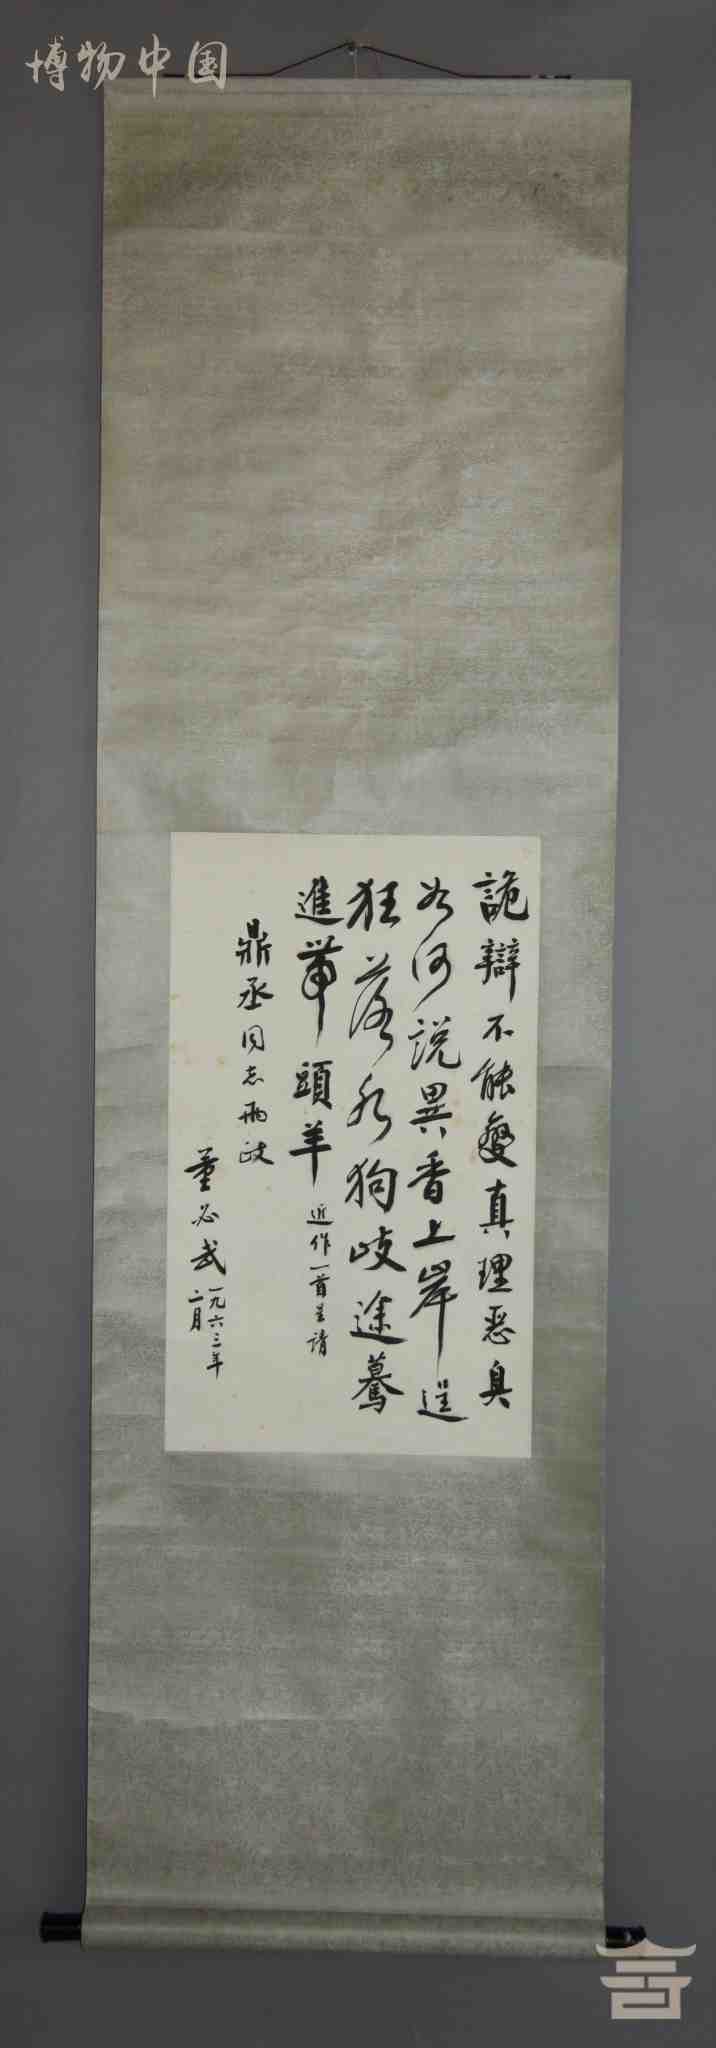 博物中国
詭辯不能變真理惡臭
如何說異香上岸逞
狂落水狗歧途驀
進帶頭羊 近作一首呈請
鼎丞同志 政
董必武 一九六三年
二月